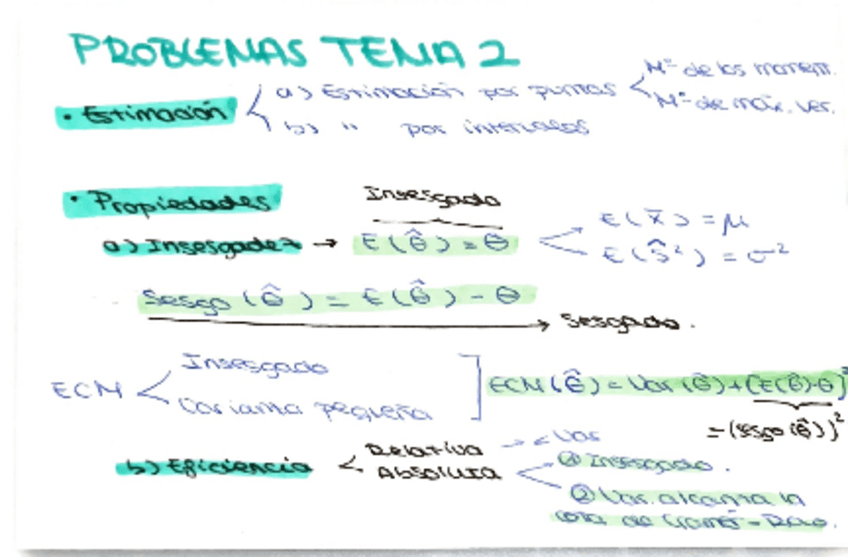 PROBLEMAS TEMA 2
• Estimación
a) Estimación por puntos
Mº de los moment.
Mº de máx. ver.
b) " por intervalos
• Propiedades
Insesgado
a) Insesgadez → E(θ̂) = θ
E(x̄) = μ
E(ŝ²) = σ²
Sesgo (θ̂) = E(θ̂) - θ
→ Sesgado.
ECM
Insesgado
Varianza pequeña
ECM(θ̂) = Var(θ̂) + [E(θ̂)-θ]²
= (sesgo(θ̂))²
b) Eficiencia
Relativa → < Var
Absoluta
① Insesgado.
② Var. alcanza la
cota de Cramér-Rao.